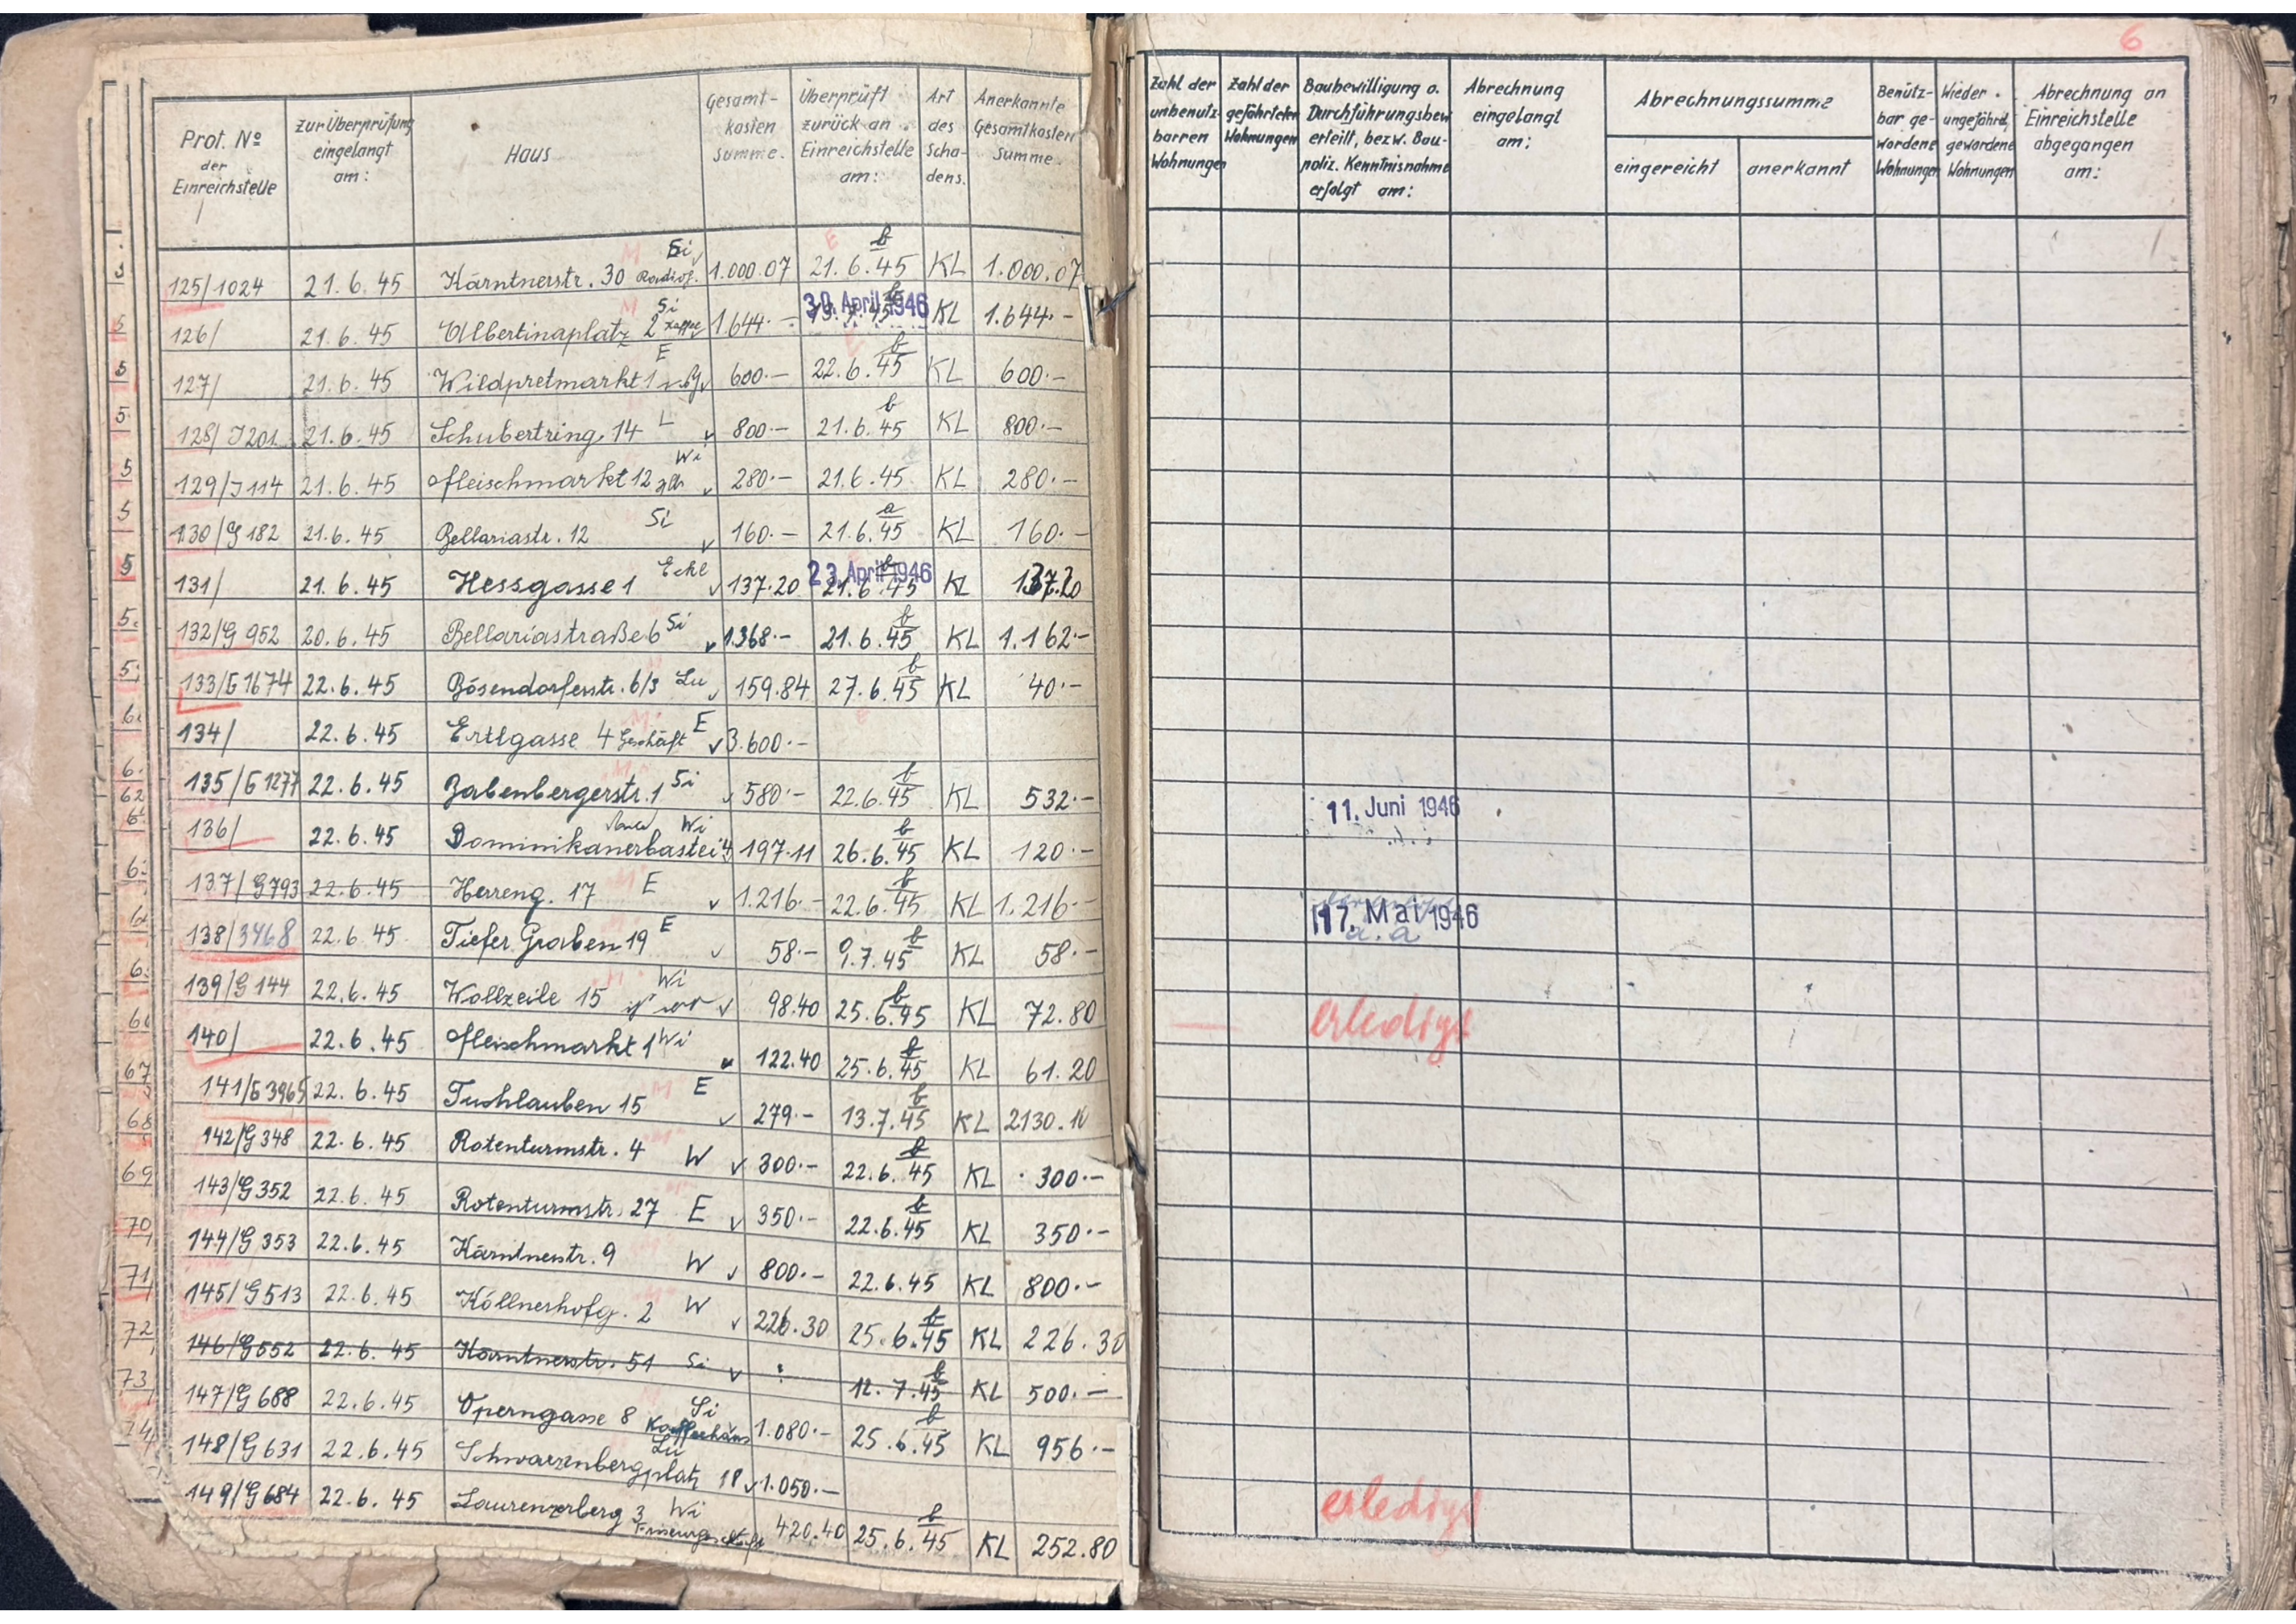 6
Prot. № der Einreichstelle
zur Überprüfung eingelangt am:
Haus
Gesamt-kosten Summe.
Überprüft zurück an Einreichstelle am:
Art des Scha-dens.
Anerkannte Gesamtkosten Summe.
Zahl der unbenutz-barren Wohnungen
Zahl der gefährteten Wohnungen
Baubewilligung o. Durchführungsbew erteilt, bezw. Bau-poliz. Kenntnisnahme erfolgt am:
Abrechnung eingelangt am:
Abrechnungssumme
eingereicht
anerkannt
Benütz-bar ge-wordene Wohnungen
Wieder ungefährd, gewordene Wohnungen
Abrechnung an Einreichstelle abgegangen am:
125/1024 21.6.45 Kärntnerstr. 30 Si 1.000.07 21.6.45 KL 1.000.07
126/ 21.6.45 Albertinaplatz 2 Si 1.644.- 30. April 1946 KL 1.644.-
127/ 21.6.45 Wildpretmarkt 1 E 600.- 22.6.45 KL 600.-
128/J201 21.6.45 Schubertring 14 L 800.- 21.6.45 KL 800.-
129/J114 21.6.45 Fleischmarkt 12 Wi 280.- 21.6.45 KL 280.-
130/G182 21.6.45 Bellariastr. 12 Si 160.- 21.6.45 KL 160.-
131/ 21.6.45 Hessgasse 1 Ecke 137.20 21.6.45 23. April 1946 KL 137.20
132/G952 20.6.45 Bellariastraße 6 Si 1.368.- 21.6.45 KL 1.162.-
133/G1674 22.6.45 Bösendorferstr. 6/3 Lu 159.84 27.6.45 KL 40.-
134/ 22.6.45 Ertlgasse 4 Geschäft E 3.600.-
135/G1277 22.6.45 Babenbergerstr. 1 Si 580.- 22.6.45 KL 532.-
11. Juni 1946
136/ 22.6.45 Dominikanerbastei 4 Wi 197.11 26.6.45 KL 120.-
137/G793 22.6.45 Herreng. 17 E 1.216.- 22.6.45 KL 1.216.-
17. Mai 1946
138/3468 22.6.45 Tiefer Graben 19 E 58.- 9.7.45 KL 58.-
139/G144 22.6.45 Wollzeile 15 Wi 98.40 25.6.45 KL 72.80
erledigt
140/ 22.6.45 Fleischmarkt 1 Wi 122.40 25.6.45 KL 61.20
141/G3965 22.6.45 Tuchlauben 15 E 279.- 13.7.45 KL 2130.10
142/G348 22.6.45 Rotenturmstr. 4 W 300.- 22.6.45 KL 300.-
143/G352 22.6.45 Rotenturmstr. 27 E 350.- 22.6.45 KL 350.-
144/G353 22.6.45 Kärntnerstr. 9 W 800.- 22.6.45 KL 800.-
145/G513 22.6.45 Köllnerhofg. 2 W 226.30 25.6.45 KL 226.30
146/G552 22.6.45 Kärntnerstr. 51 Si 12.7.45 KL 500.-
147/G688 22.6.45 Operngasse 8 Si Kaffeehaus 1.080.- 25.6.45 KL 956.-
148/G631 22.6.45 Schwarzenbergplatz 18 Lu 1.050.-
erledigt
149/G684 22.6.45 Laurenzerberg 3 Wi Friseurgeschäft 420.40 25.6.45 KL 252.80